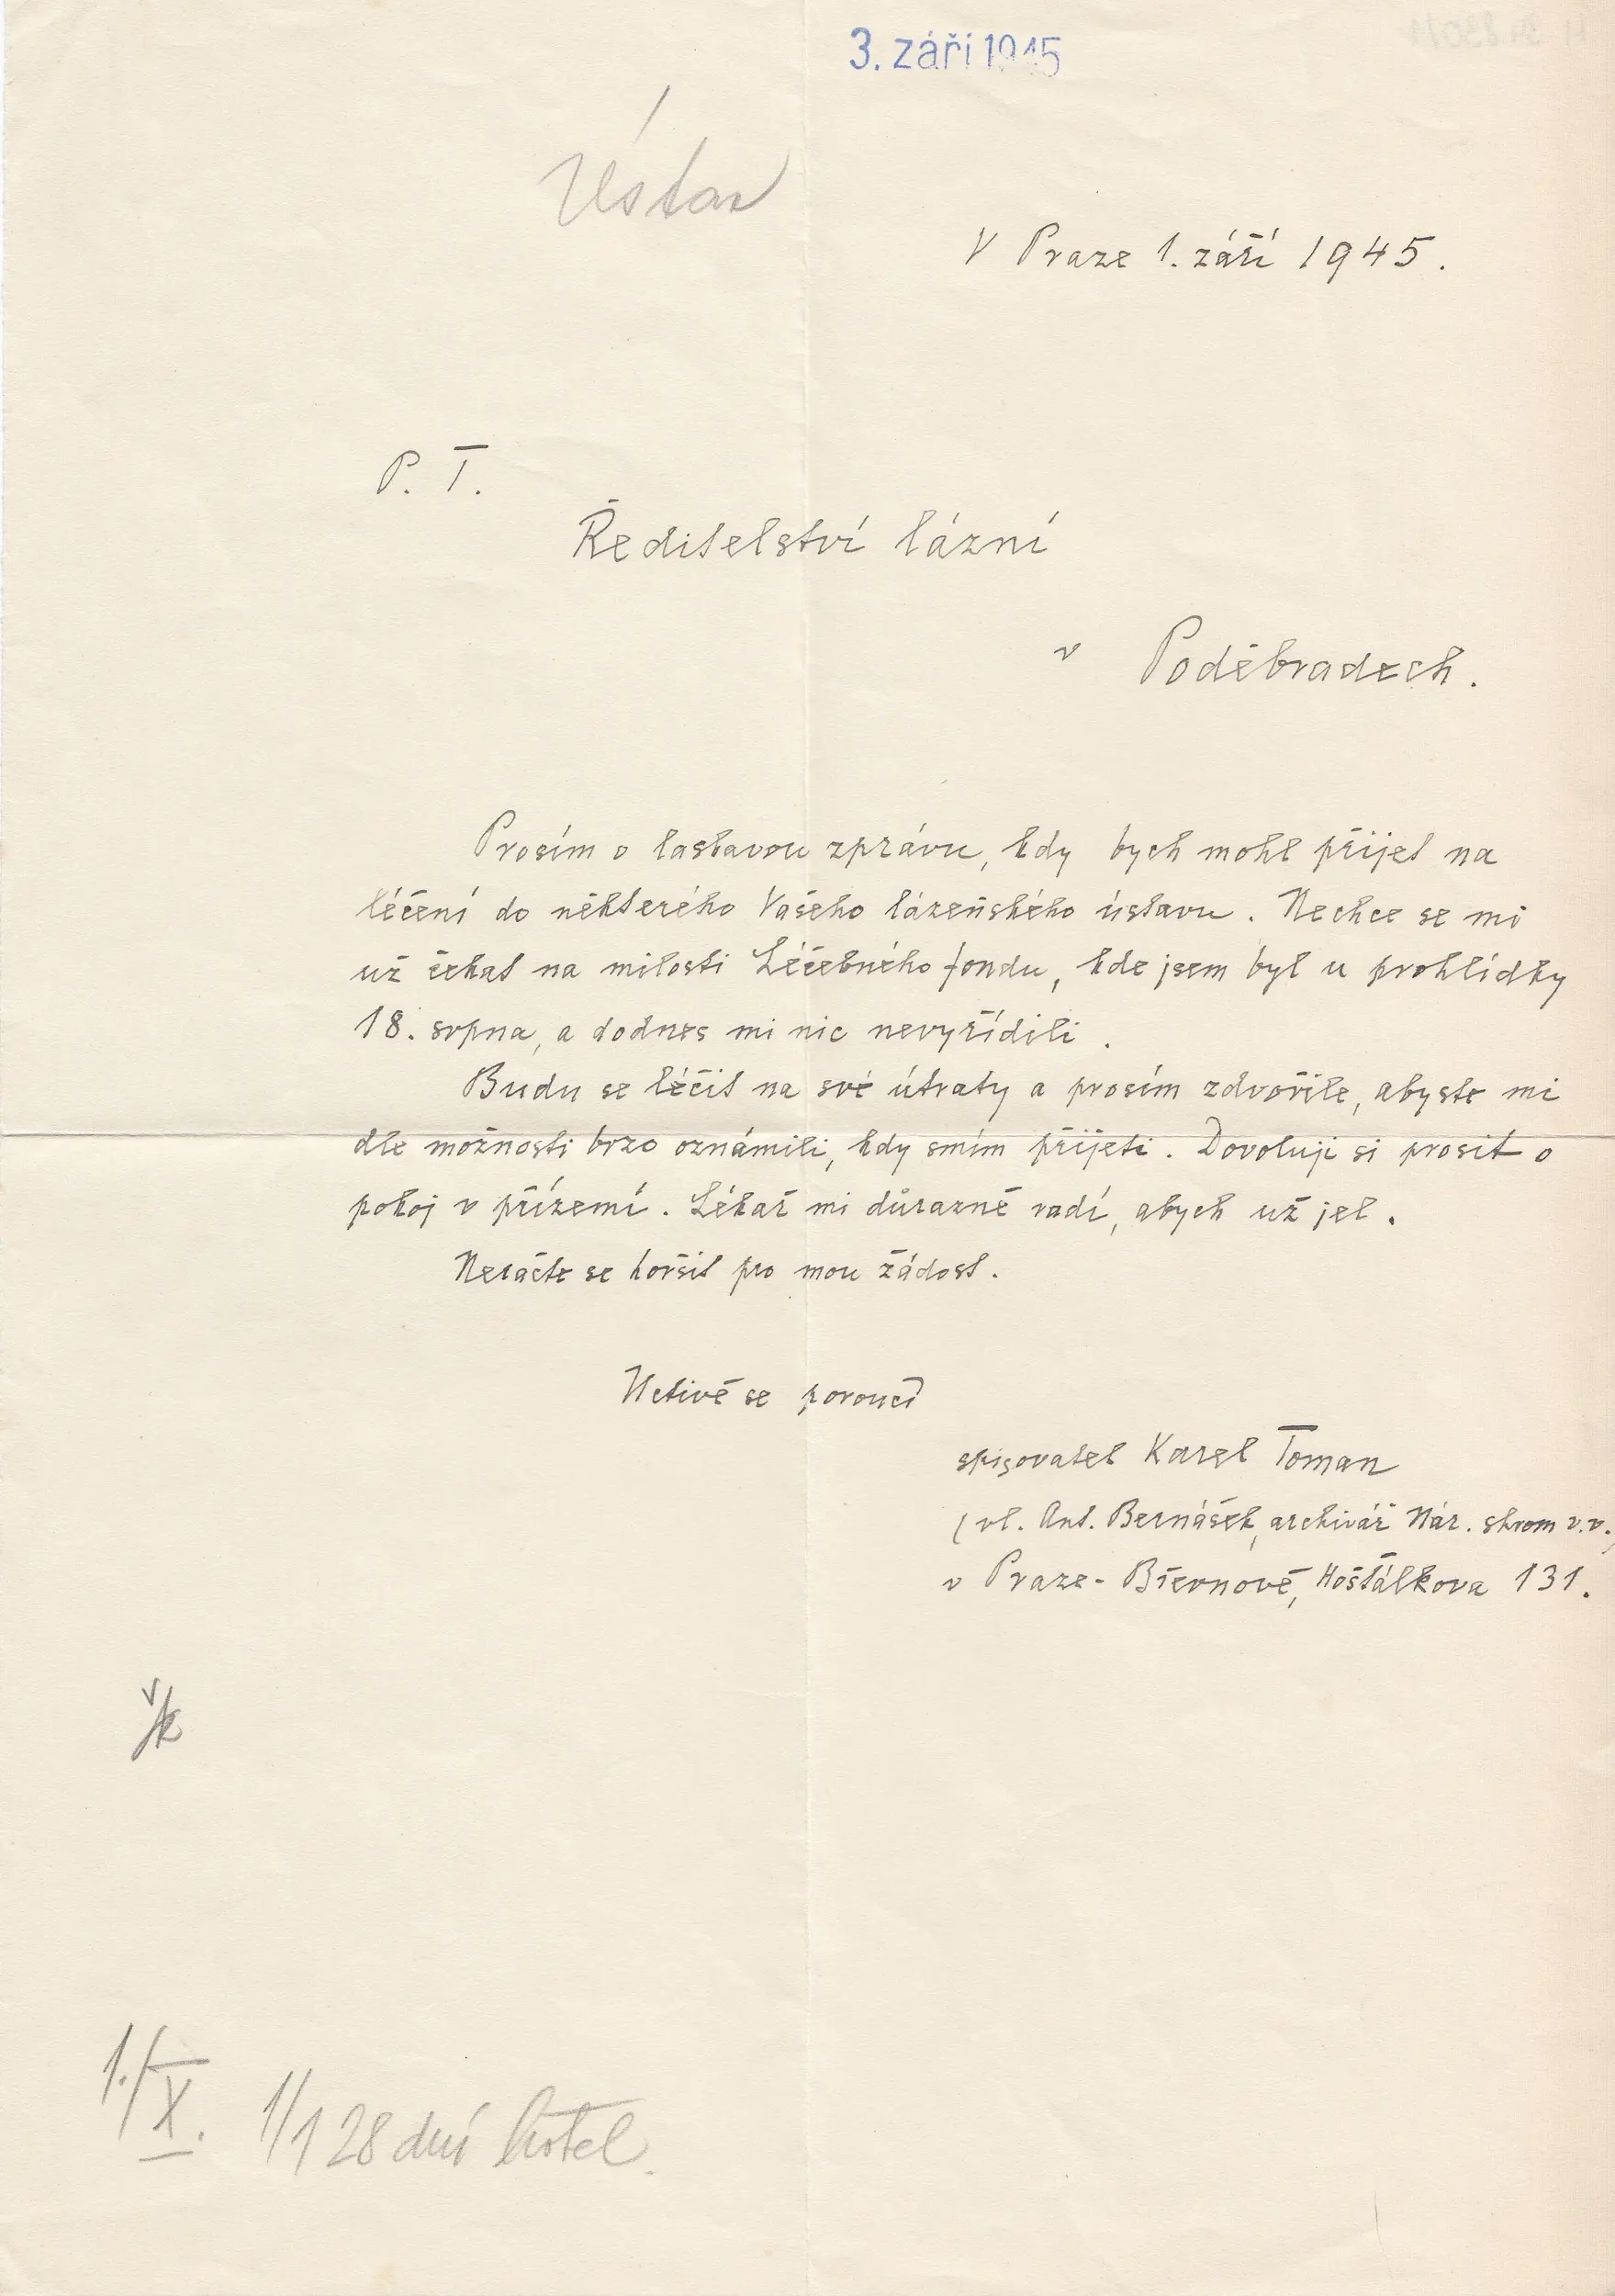 3. září 1945
Ústav
V Praze 1. září 1945.
P. T.
Ředitelství lázní
v Poděbradech.
Prosím o laskavou zprávu, kdy bych mohl přijet na
léčení do některého Vašeho lázeňského ústavu. Nechce se mi
už čekat na milosti Léčebného fondu, kde jsem byl u prohlídky
18. srpna, a dodnes mi nic nevyřídili.
Budu se léčit na své útraty a prosím zdvořile, abyste mi
dle možnosti brzo oznámili, kdy smím přijeti. Dovoluji si prosit o
pokoj v přízemí. Lékař mi důrazně radí, abych už jel.
Neračte se horšit pro mou žádost.
Uctivě se poroučí
spisovatel Karel Toman
(vl. Ant. Bernášek, archivář Nár. shrom v.v.)
v Praze-Břevnově, Hošťálkova 131.
1./X. 1/1 28 dní hotel.